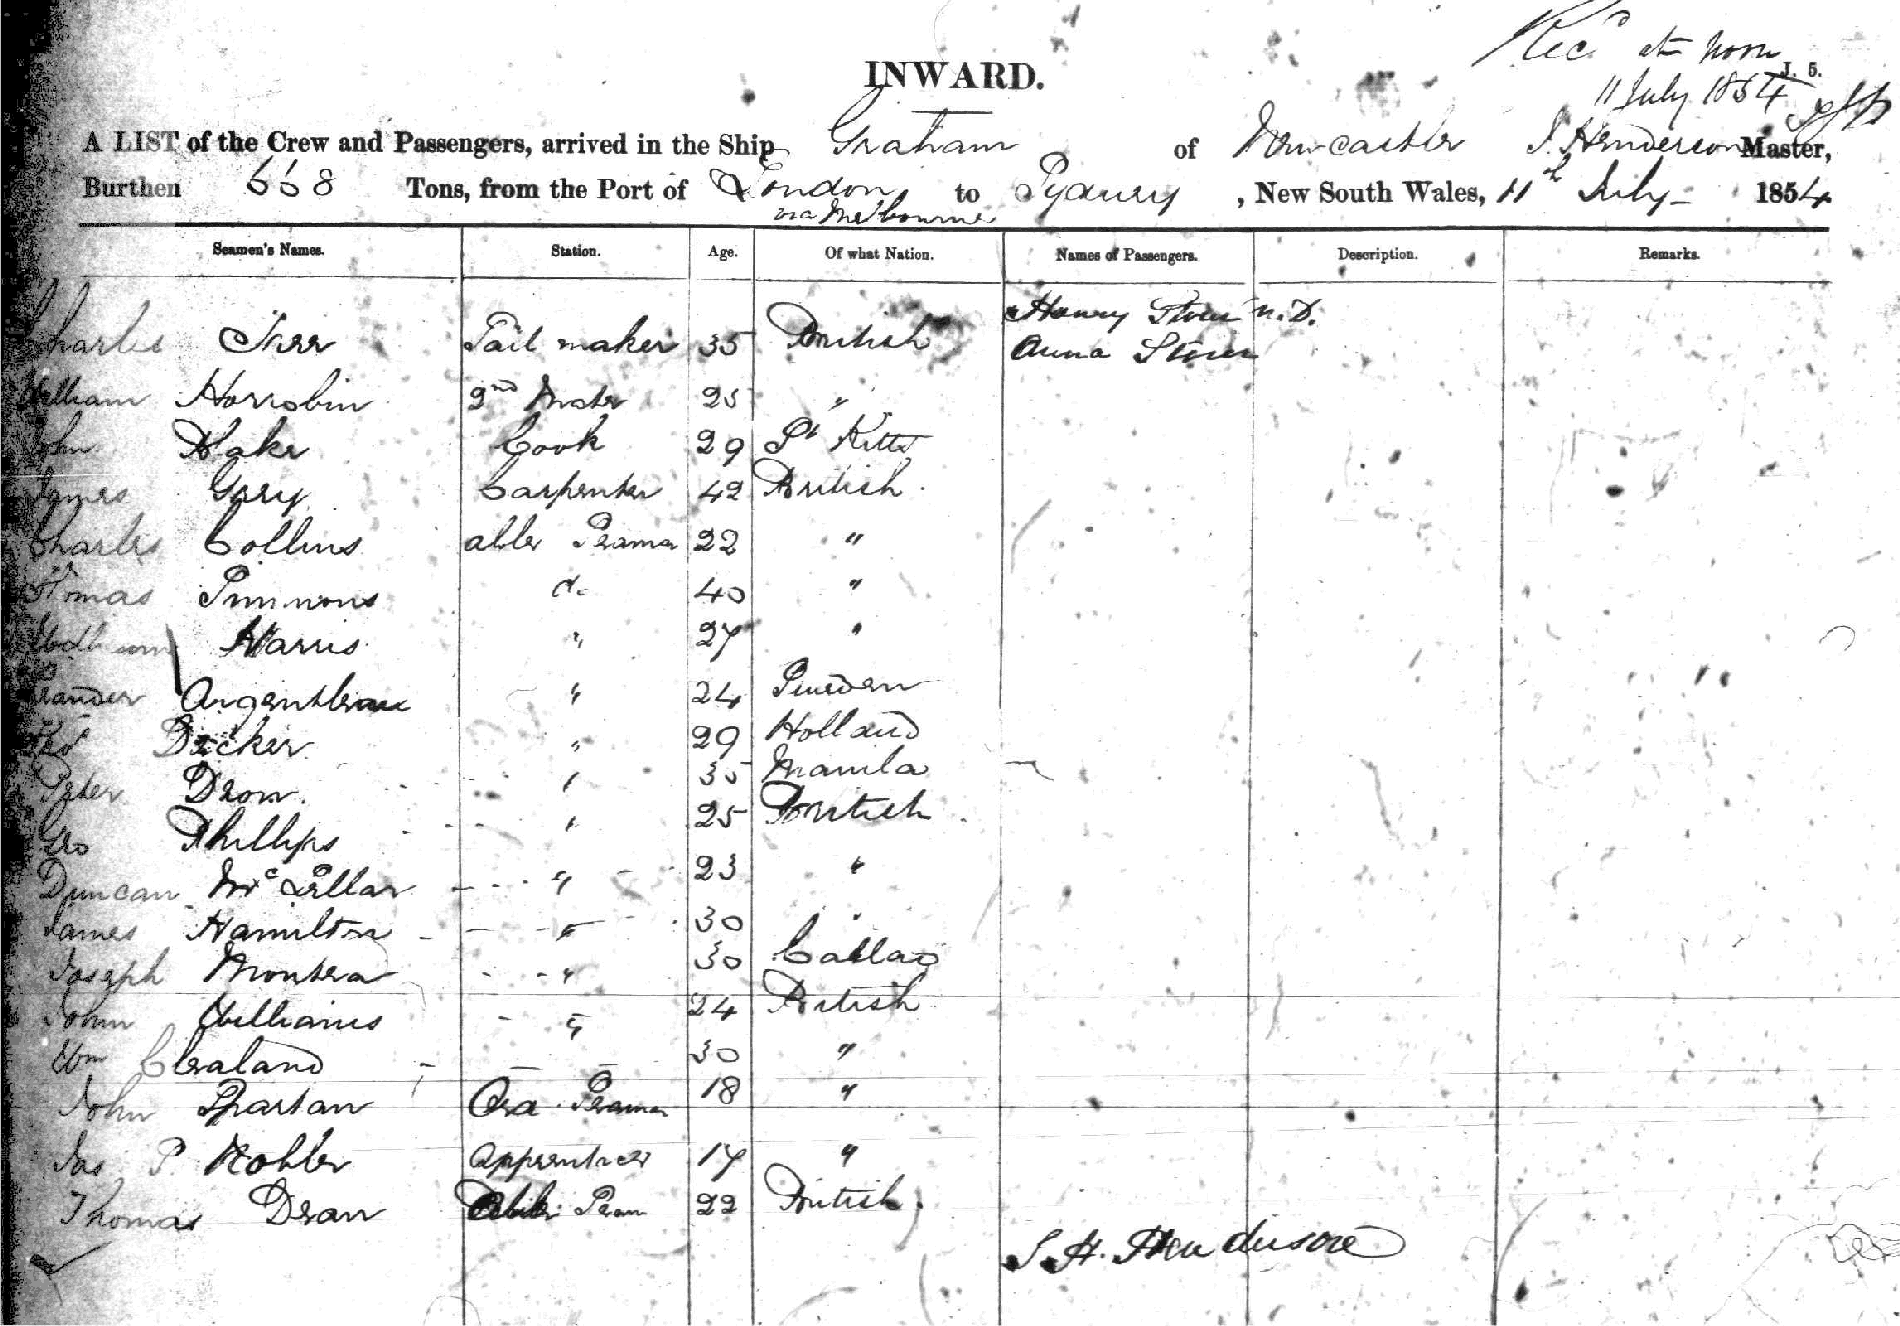 Recd at noon
J. 5.
11 July 1854
INWARD.
A LIST of the Crew and Passengers, arrived in the Ship Graham of Newcastle J. Henderson Master,
Burthen 668 Tons, from the Port of London to Sydney, New South Wales, 11th July 1854
via Melbourne
Seamen's Names. Station. Age. Of what Nation. Names of Passengers. Description. Remarks.
Henry
Charles Sail maker 35 British Anna
William Horrobin 2nd Mate 25 "
John Blake Cook 29 St Kitts
James Gery Carpenter 42 British
Charles Collins able Seaman 22 "
Thomas Simmons do 40 "
Harris " 27 "
" 24 Sweden
Thos Decker " 29 Holland
Peter Drow " 35 Manila
Geo Phillips " 25 British
Duncan McLellar " 23 "
James Hamilton " 30 "
Joseph Montera " 30 Callao
John Williams " 24 British
Wm Cleland 30 "
John Spartan Ord. Seaman 18 "
Jas P. Kohler apprentice 17 "
Thomas Dean Able Seam 22 British
S. H. Henderson